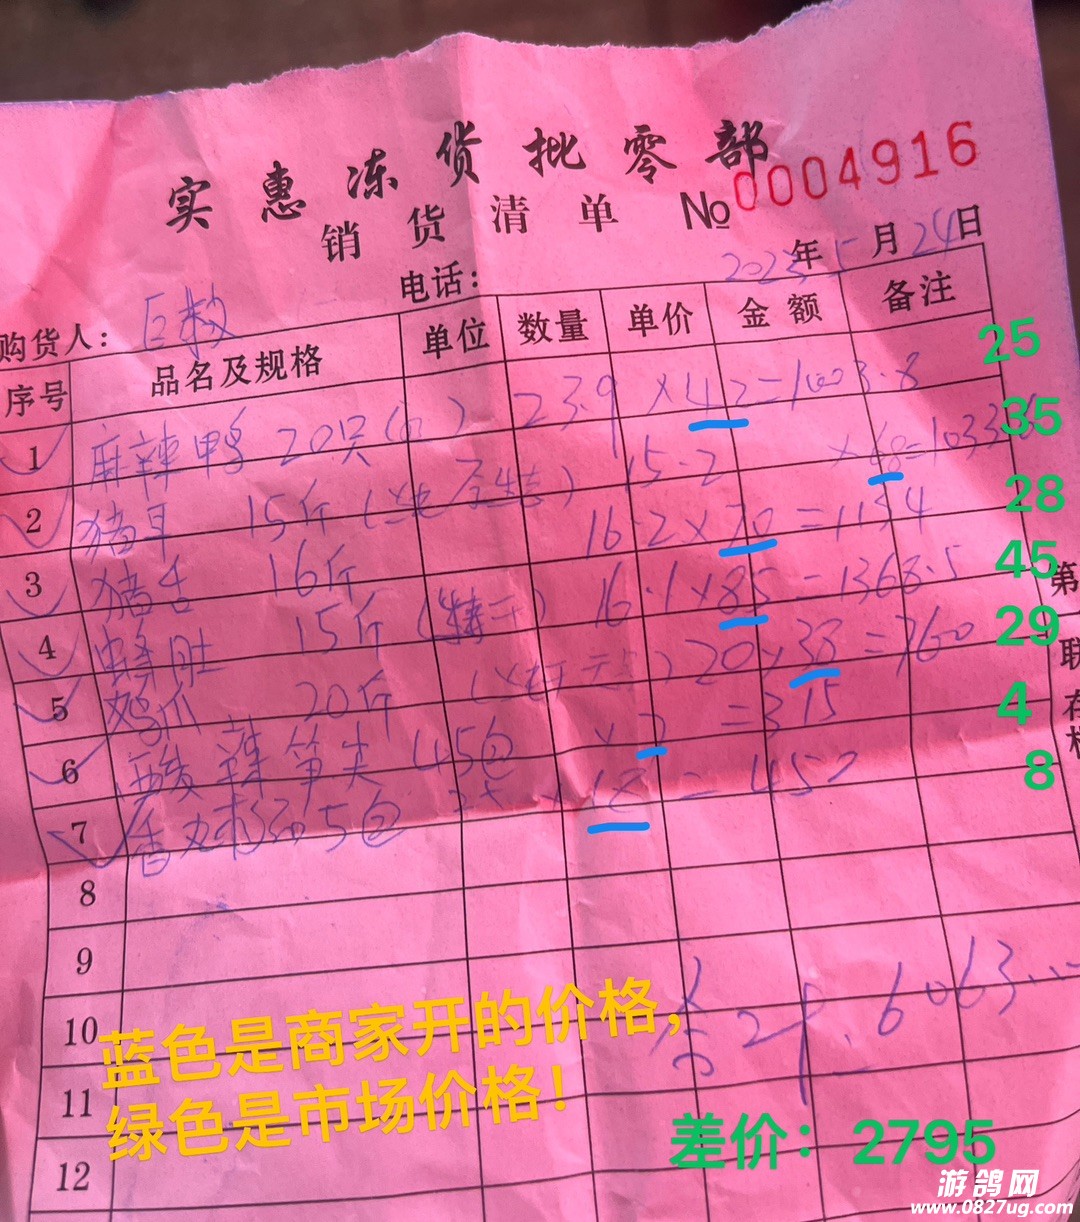 实惠冻货批零部
销货清单 № 0004916
电话： 2023年5月24日
购货人：
序号 品名及规格 单位 数量 单价 金额 备注
25
1 麻辣鸭 20只 23.9 ×42=1003.8
35
2 猪 15斤 15.2 ×68=1033.6
28
3 猪舌 16斤 16.2×70=1134
45
4 蜂肚 15斤 16.1×85=1368.5
29
5 鸡爪 20斤 20×38=760
4
6 酸辣笋尖 45包 ×7 =315
8
7 5包 25×18=450
8
9
10
11
12
6063
第
联
存
根
蓝色是商家开的价格，
绿色是市场价格！
差价：2795
游鸽网
www.0827ug.com